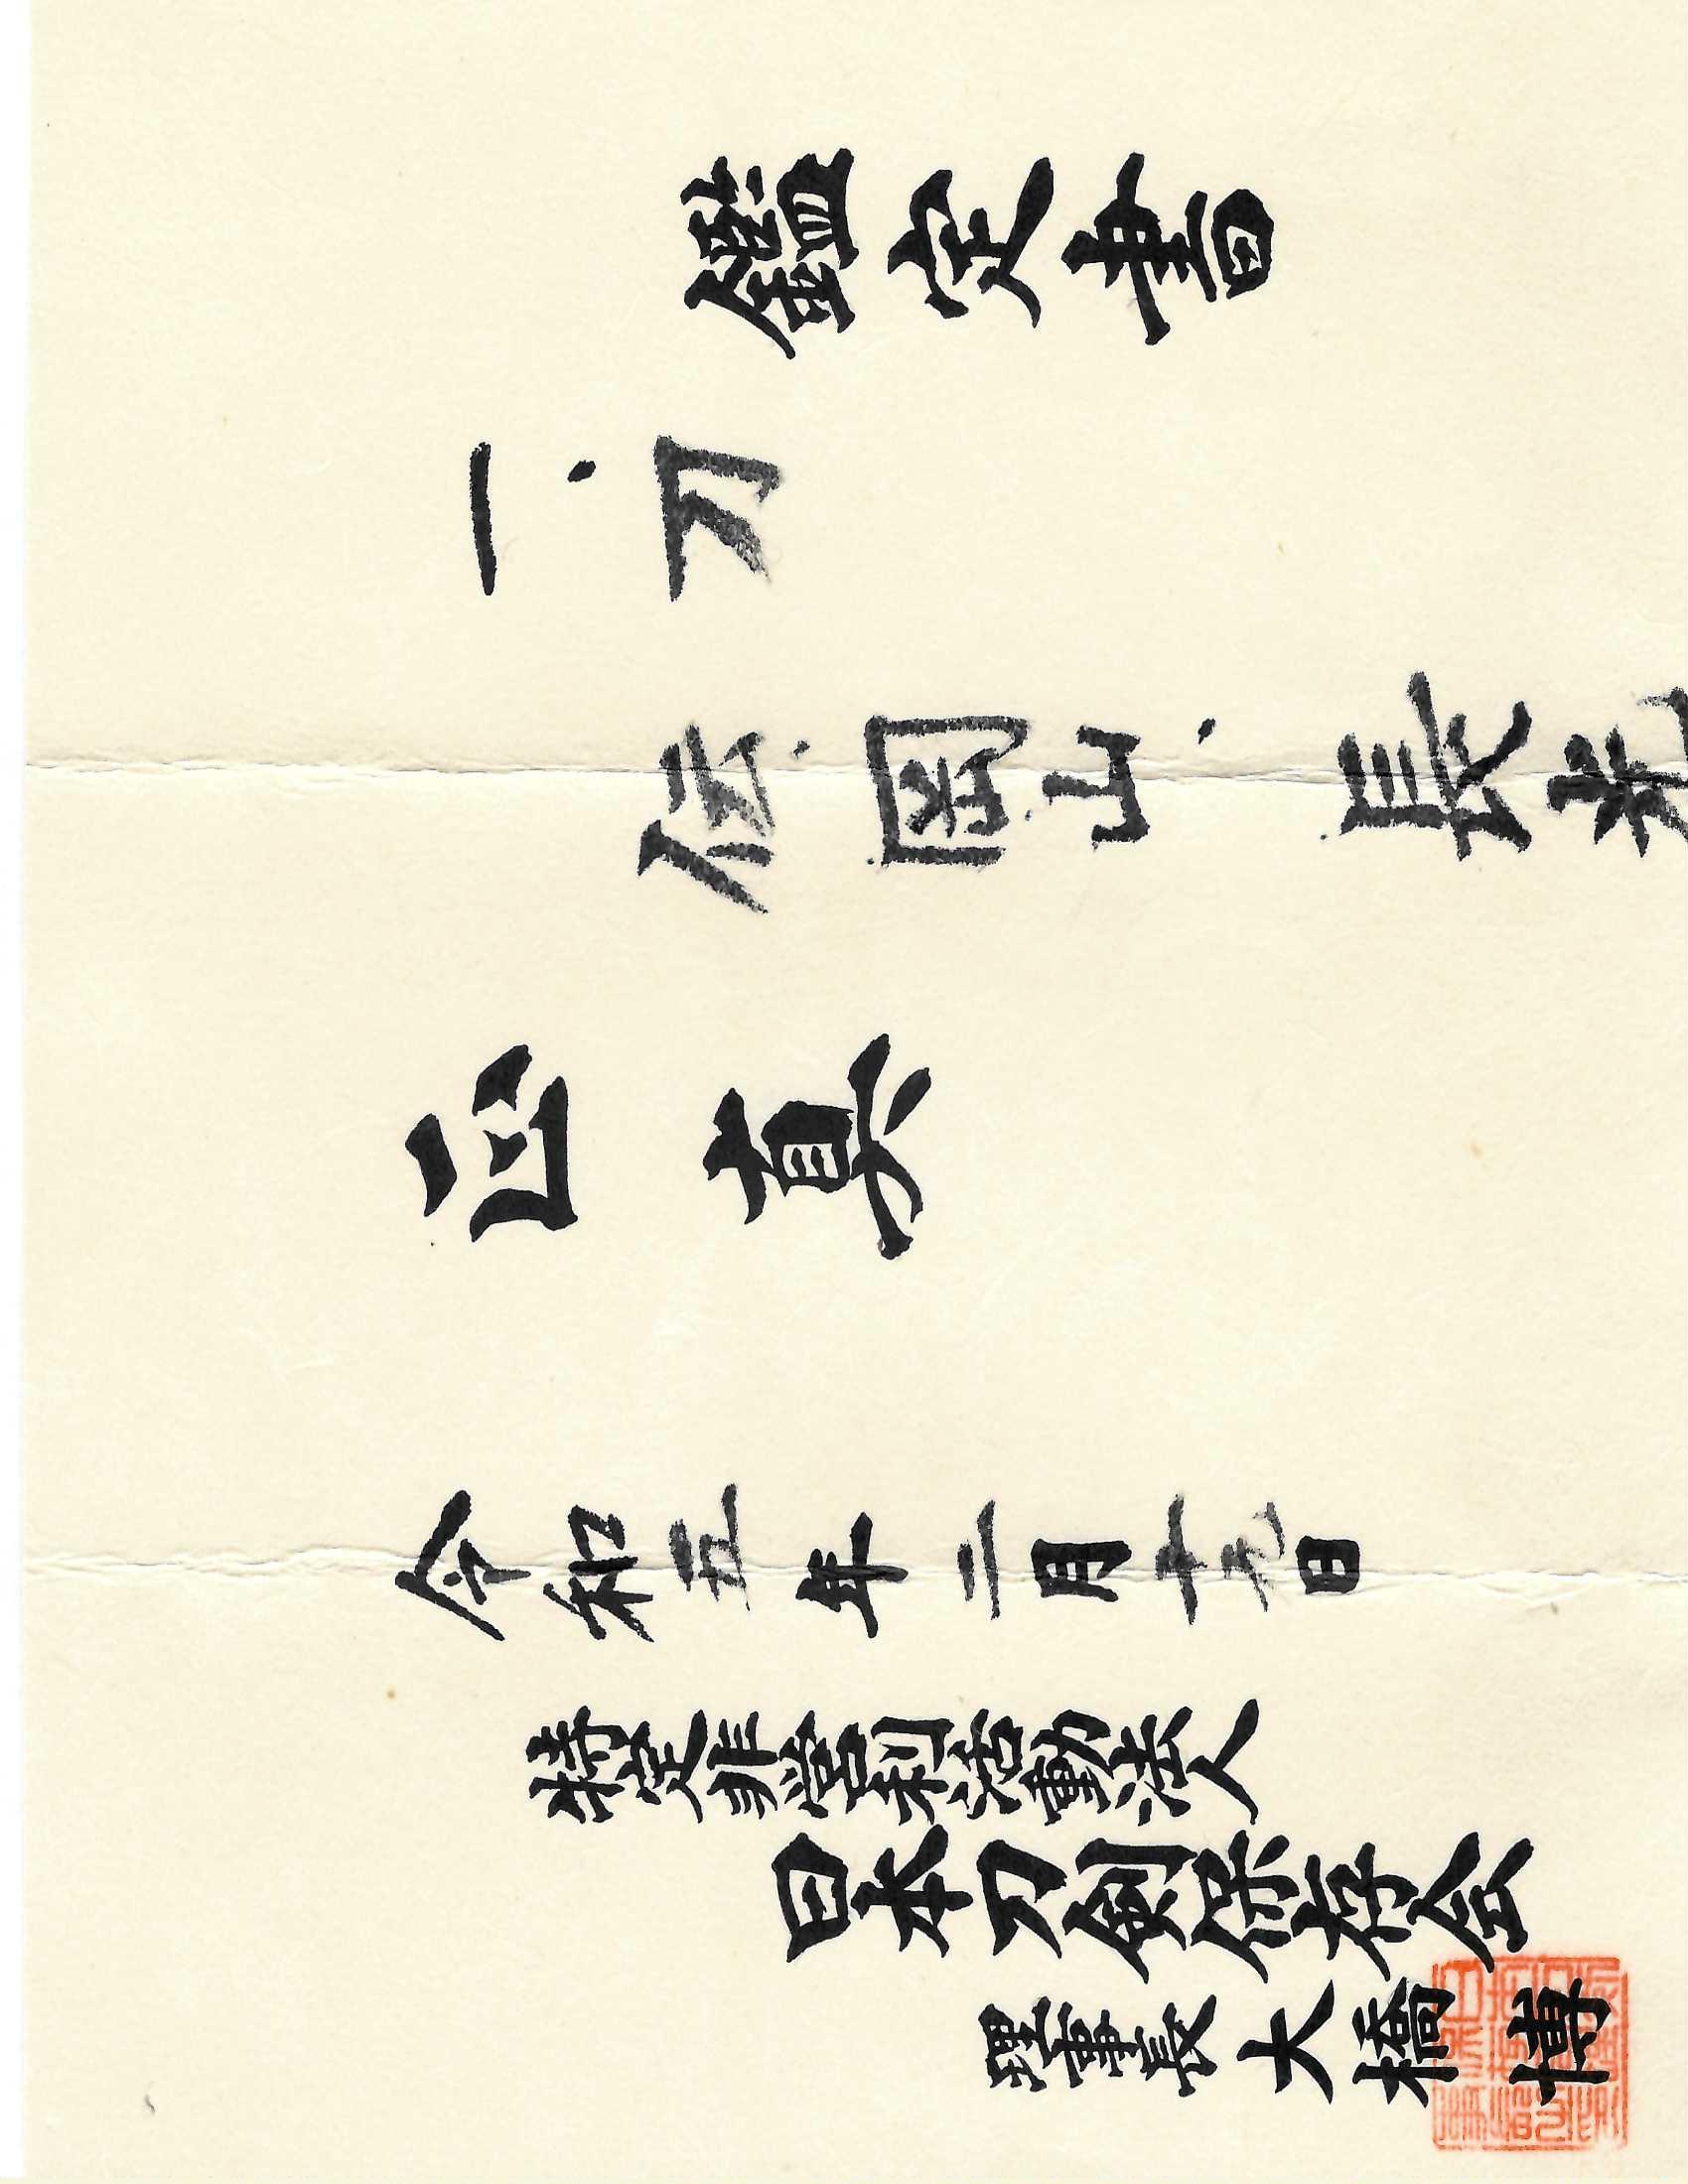 鑑定書
一、刀
伝、岡山、長光
正真
令和五年二月十九日
特定非営利活動法人
日本刀剣保存会
理事長 大橋 博